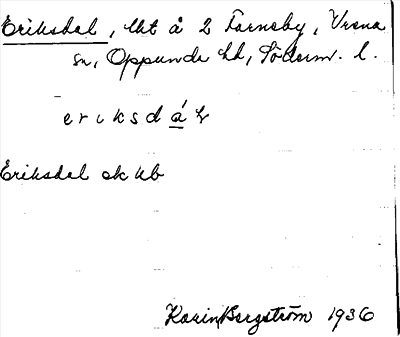 Eriksdal, lht å 2 Tarnsby, Vrena
sn, Oppunda hd, Söderm. l.
eriksdáḷ
Eriksdal ek kb
Karin Bergström 1936